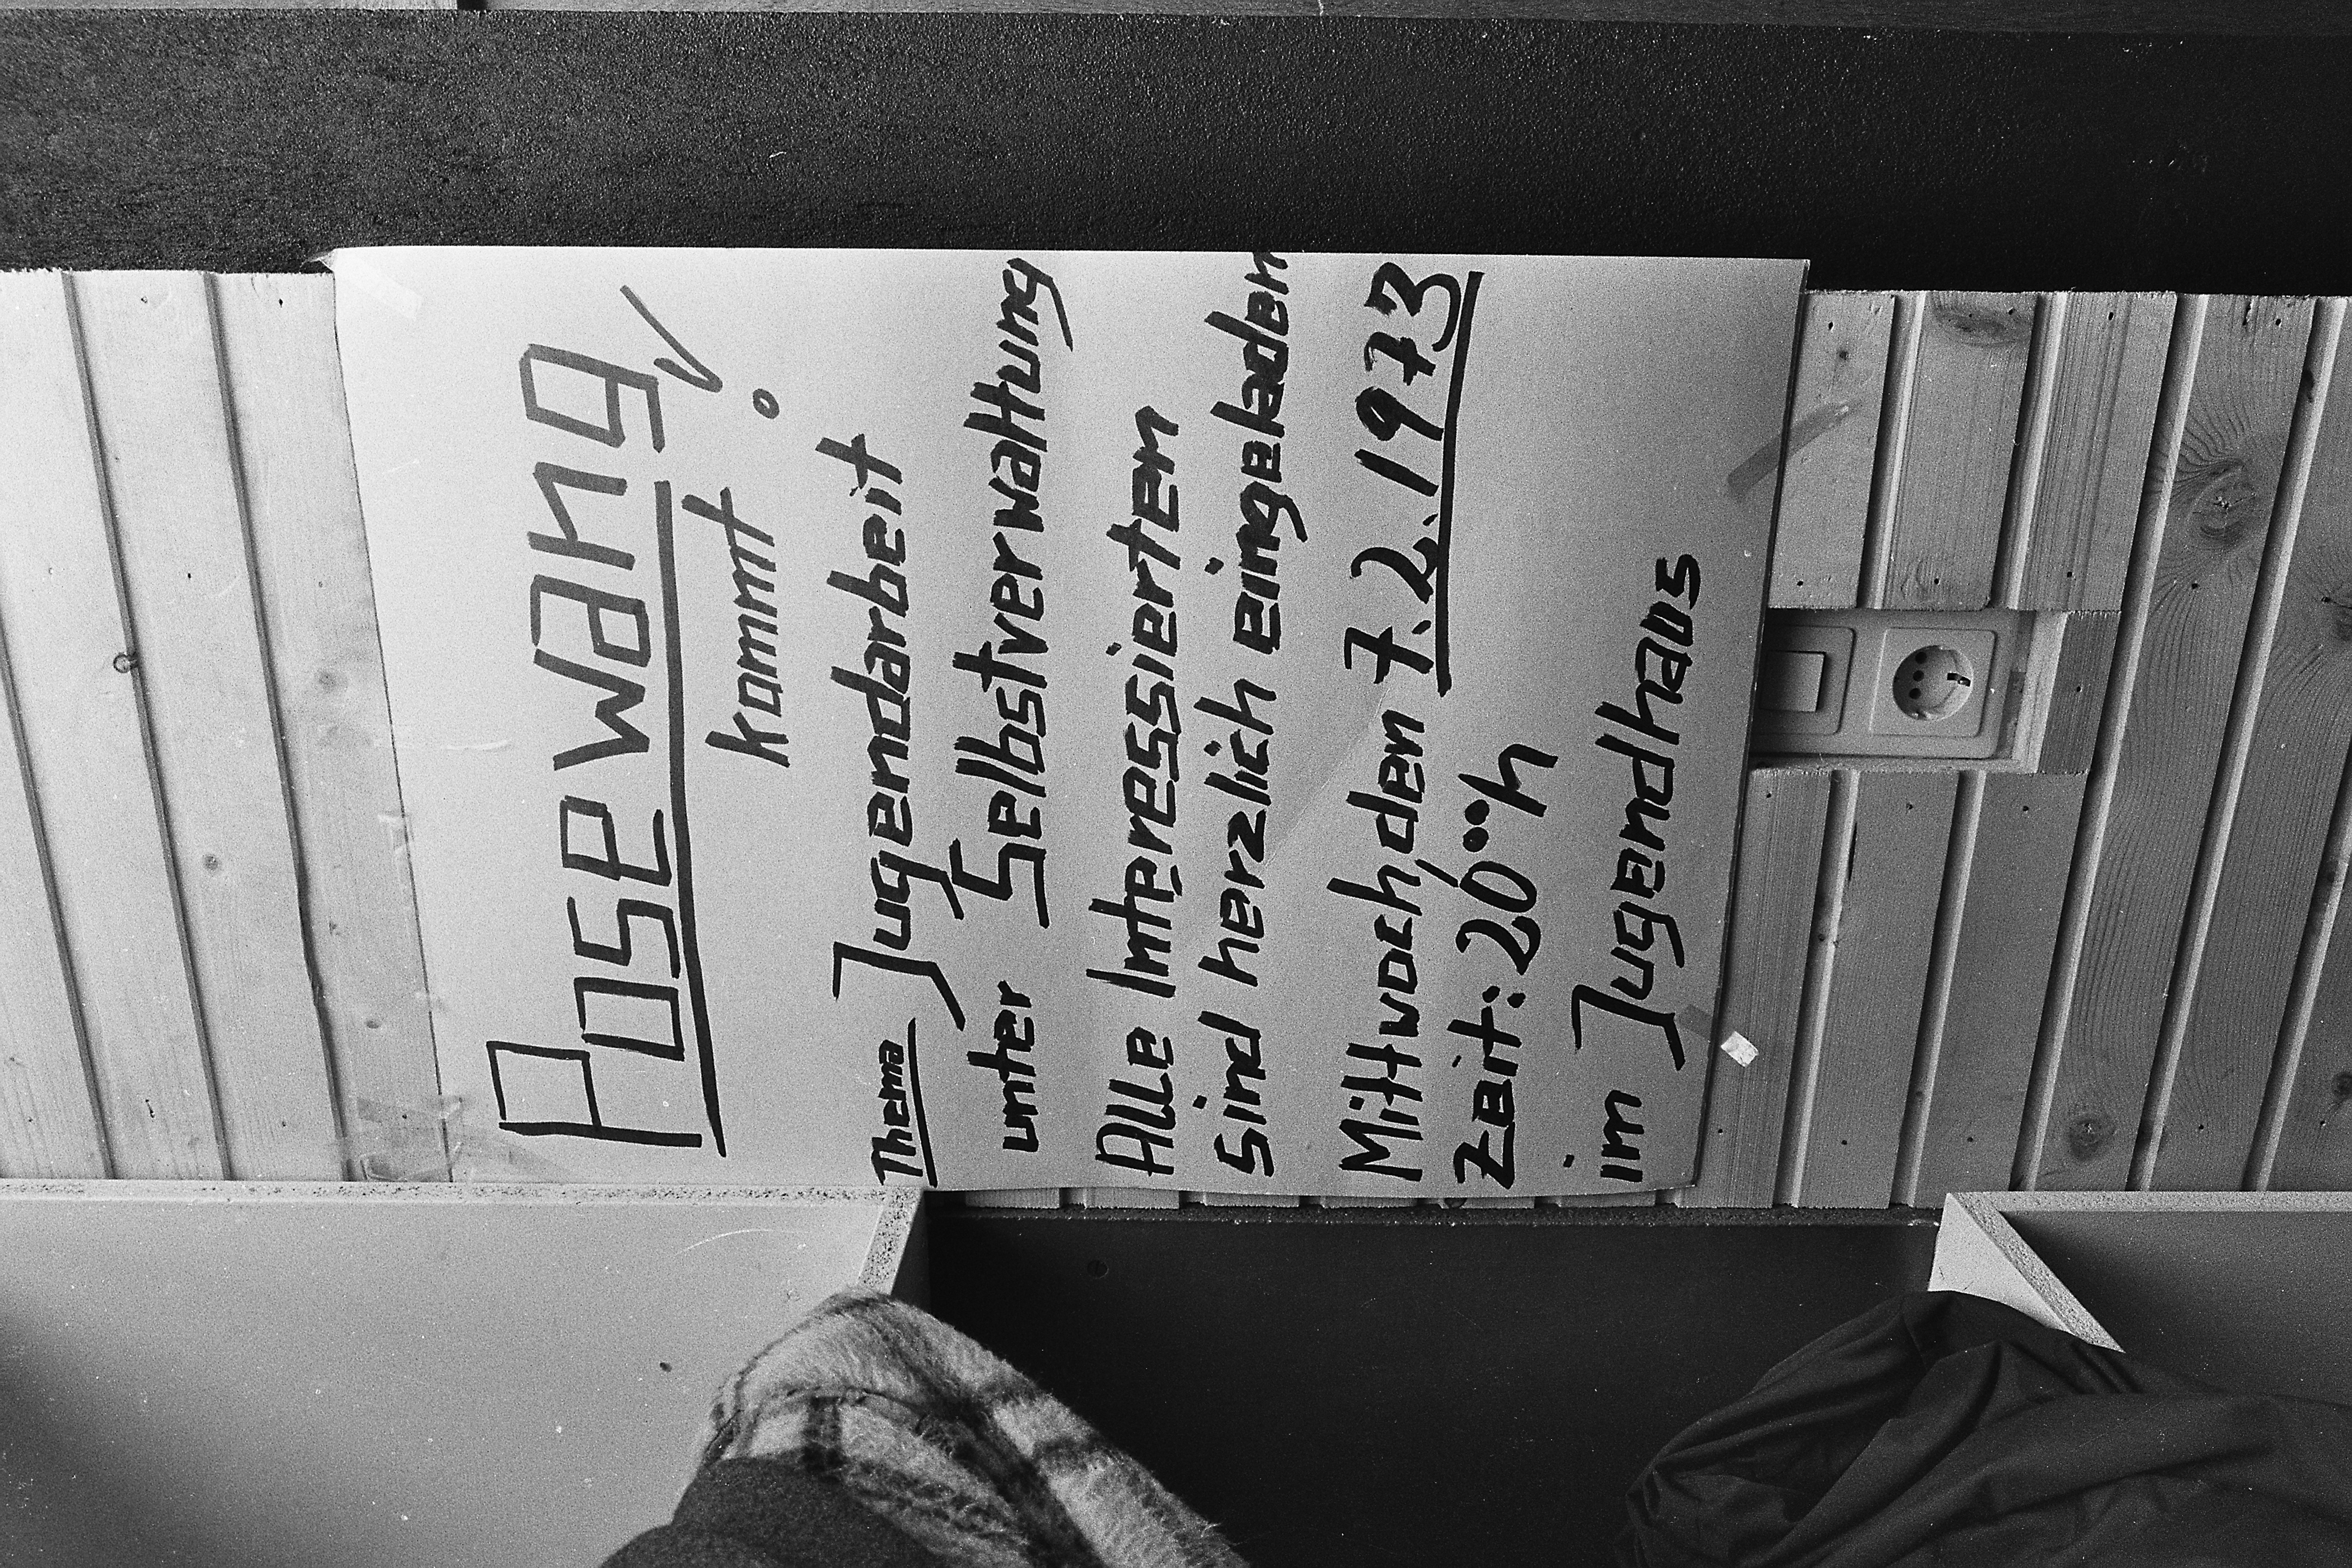 Posewang
kommt!
Thema Jugendarbeit
unter Selbstverwaltung
Alle Interessierten
sind herzlich eingeladen
Mittwoch, den 7.2.1973
Zeit: 20°°h
im Jugendhaus